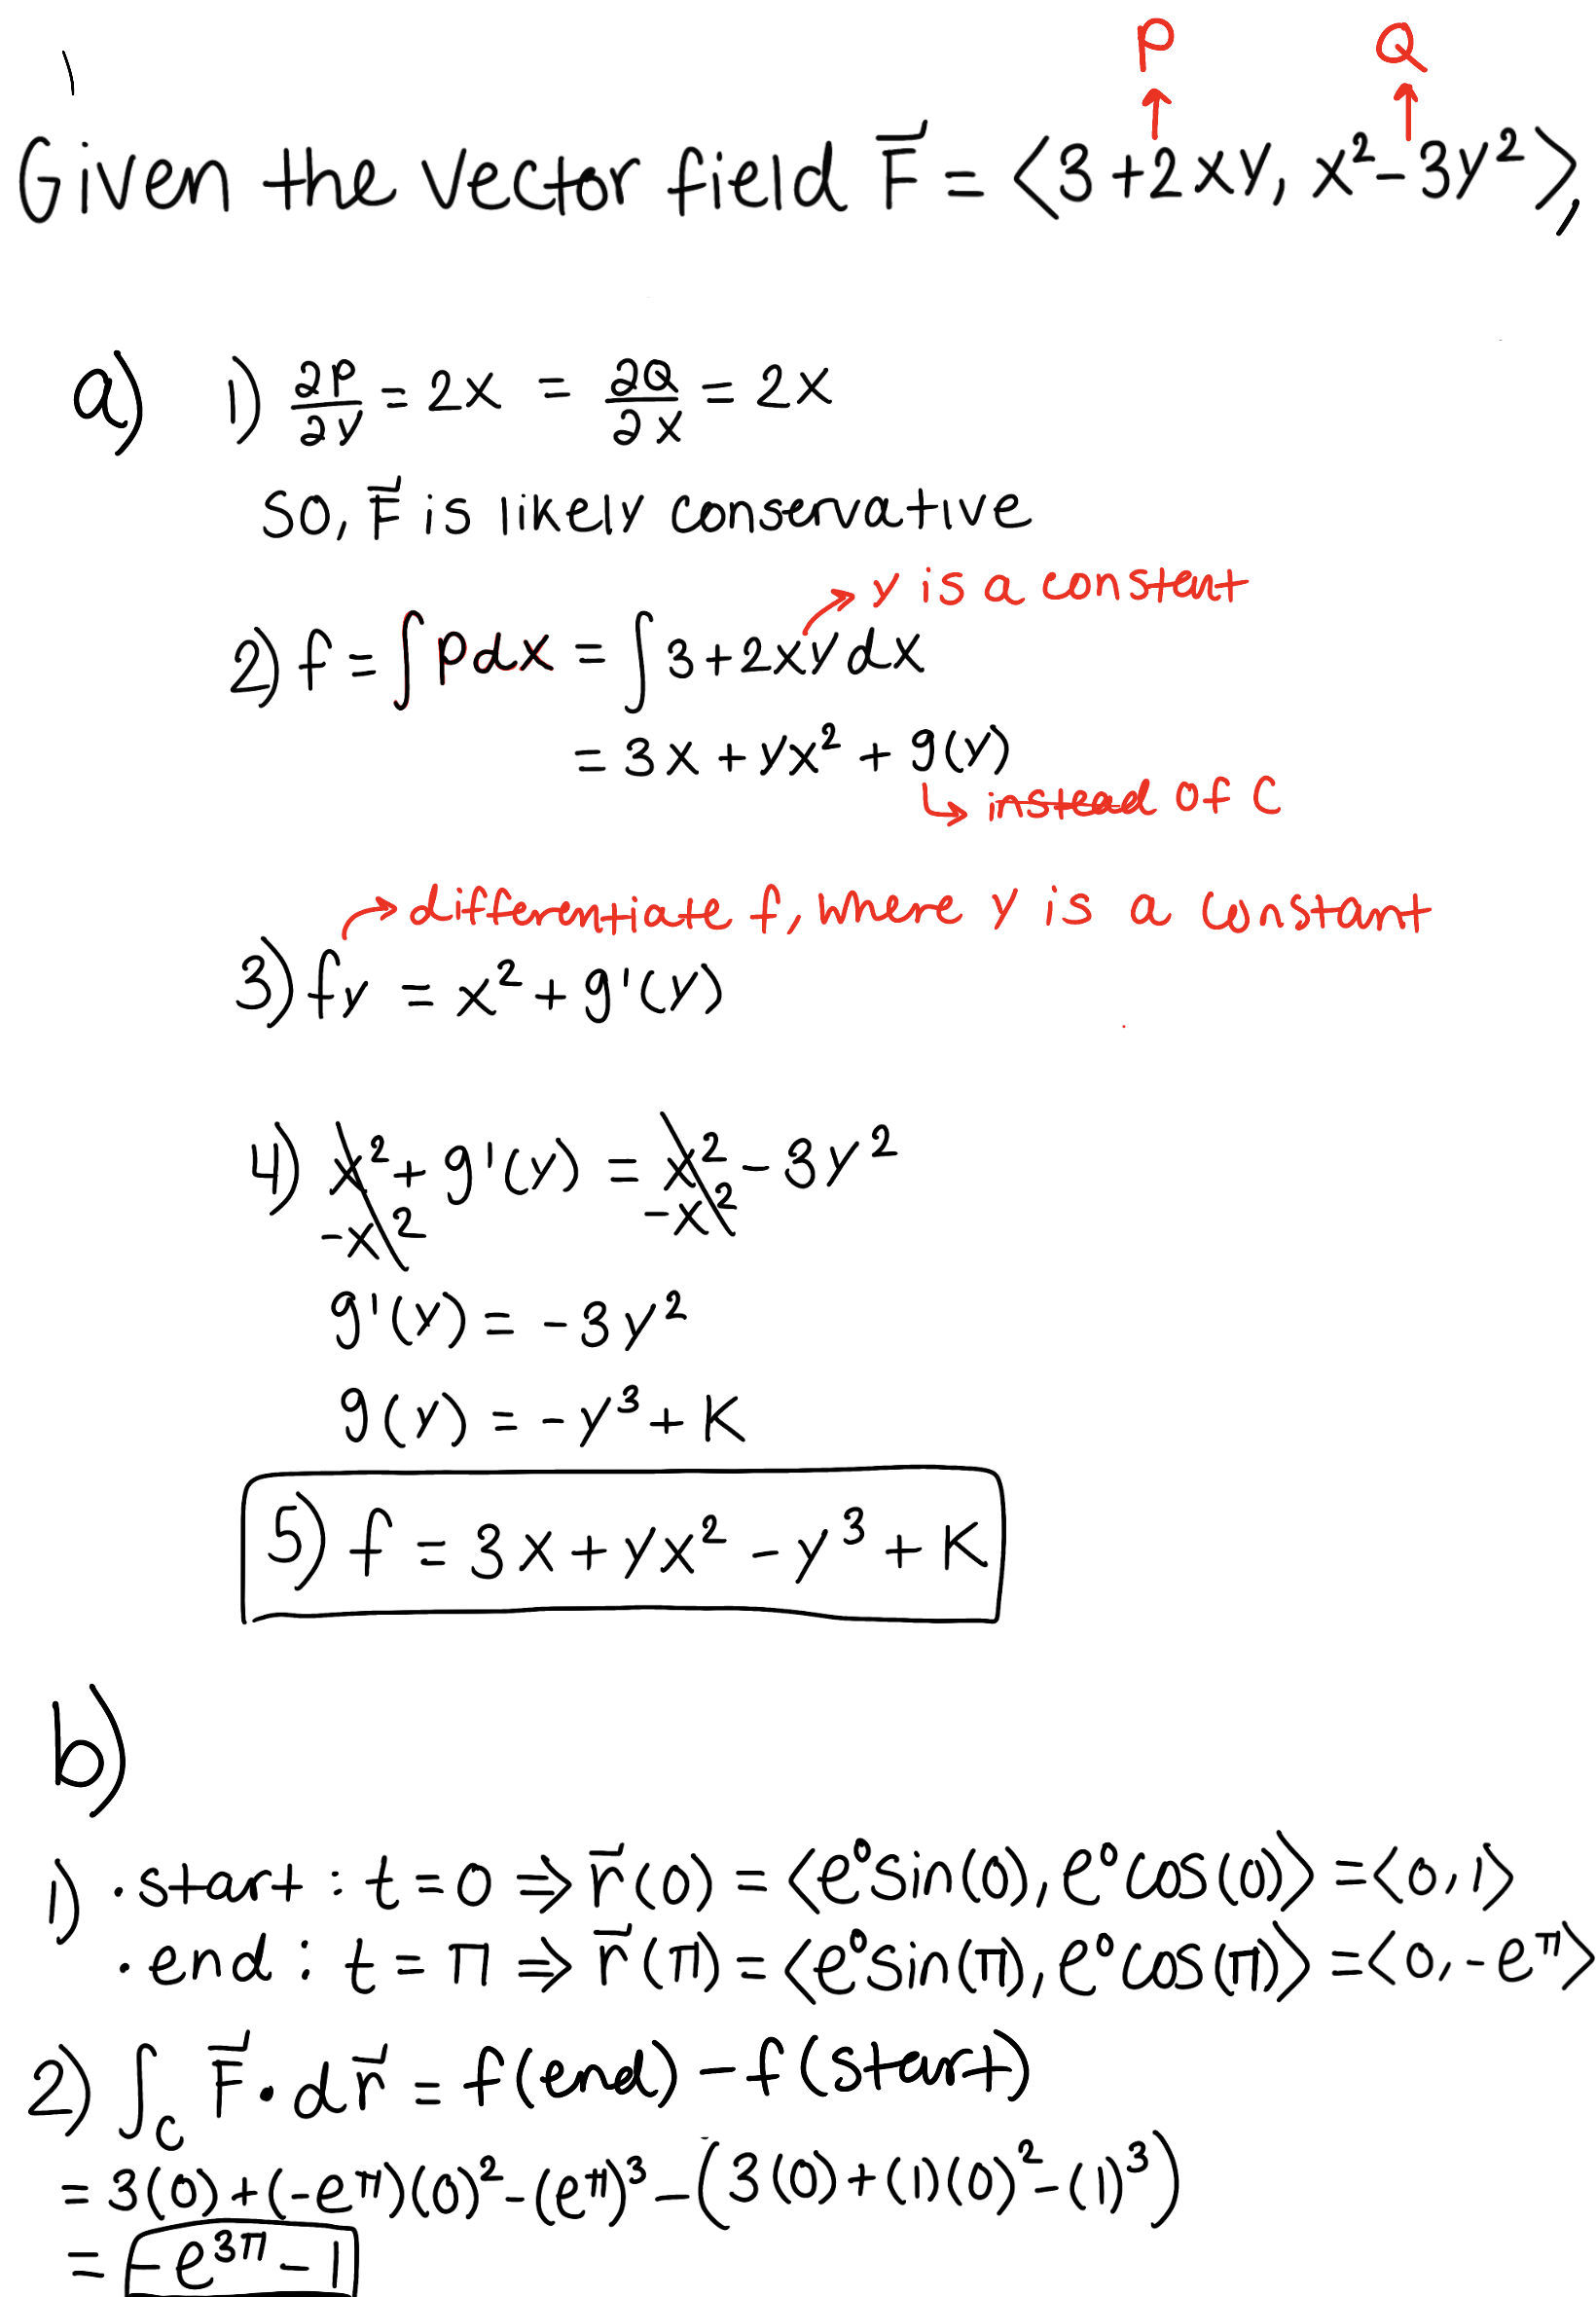 P Q
Given the vector field F⃗ = ⟨3+2xy, x²-3y²⟩,
a) 1) ∂P/∂y = 2x = ∂Q/∂x = 2x
so, F⃗ is likely conservative
y is a constant
2) f = ∫ P dx = ∫ 3+2xy dx
= 3x + yx² + g(y)
↳ instead of C
→ differentiate f, where y is a constant
3) fy = x² + g'(y)
4) x² + g'(y) = x² - 3y²
-x² -x²
g'(y) = -3y²
g(y) = -y³ + K
5) f = 3x + yx² - y³ + K
b)
1) · start : t = 0 ⇒ r⃗(0) = ⟨e⁰sin(0), e⁰cos(0)⟩ = ⟨0, 1⟩
· end : t = π ⇒ r⃗(π) = ⟨e⁰sin(π), e⁰cos(π)⟩ = ⟨0, -e^π⟩
2) ∫_C F⃗ · dr⃗ = f(end) - f(start)
= 3(0) + (-e^π)(0)² - (e^π)³ - (3(0) + (1)(0)² - (1)³)
= -e^3π - 1